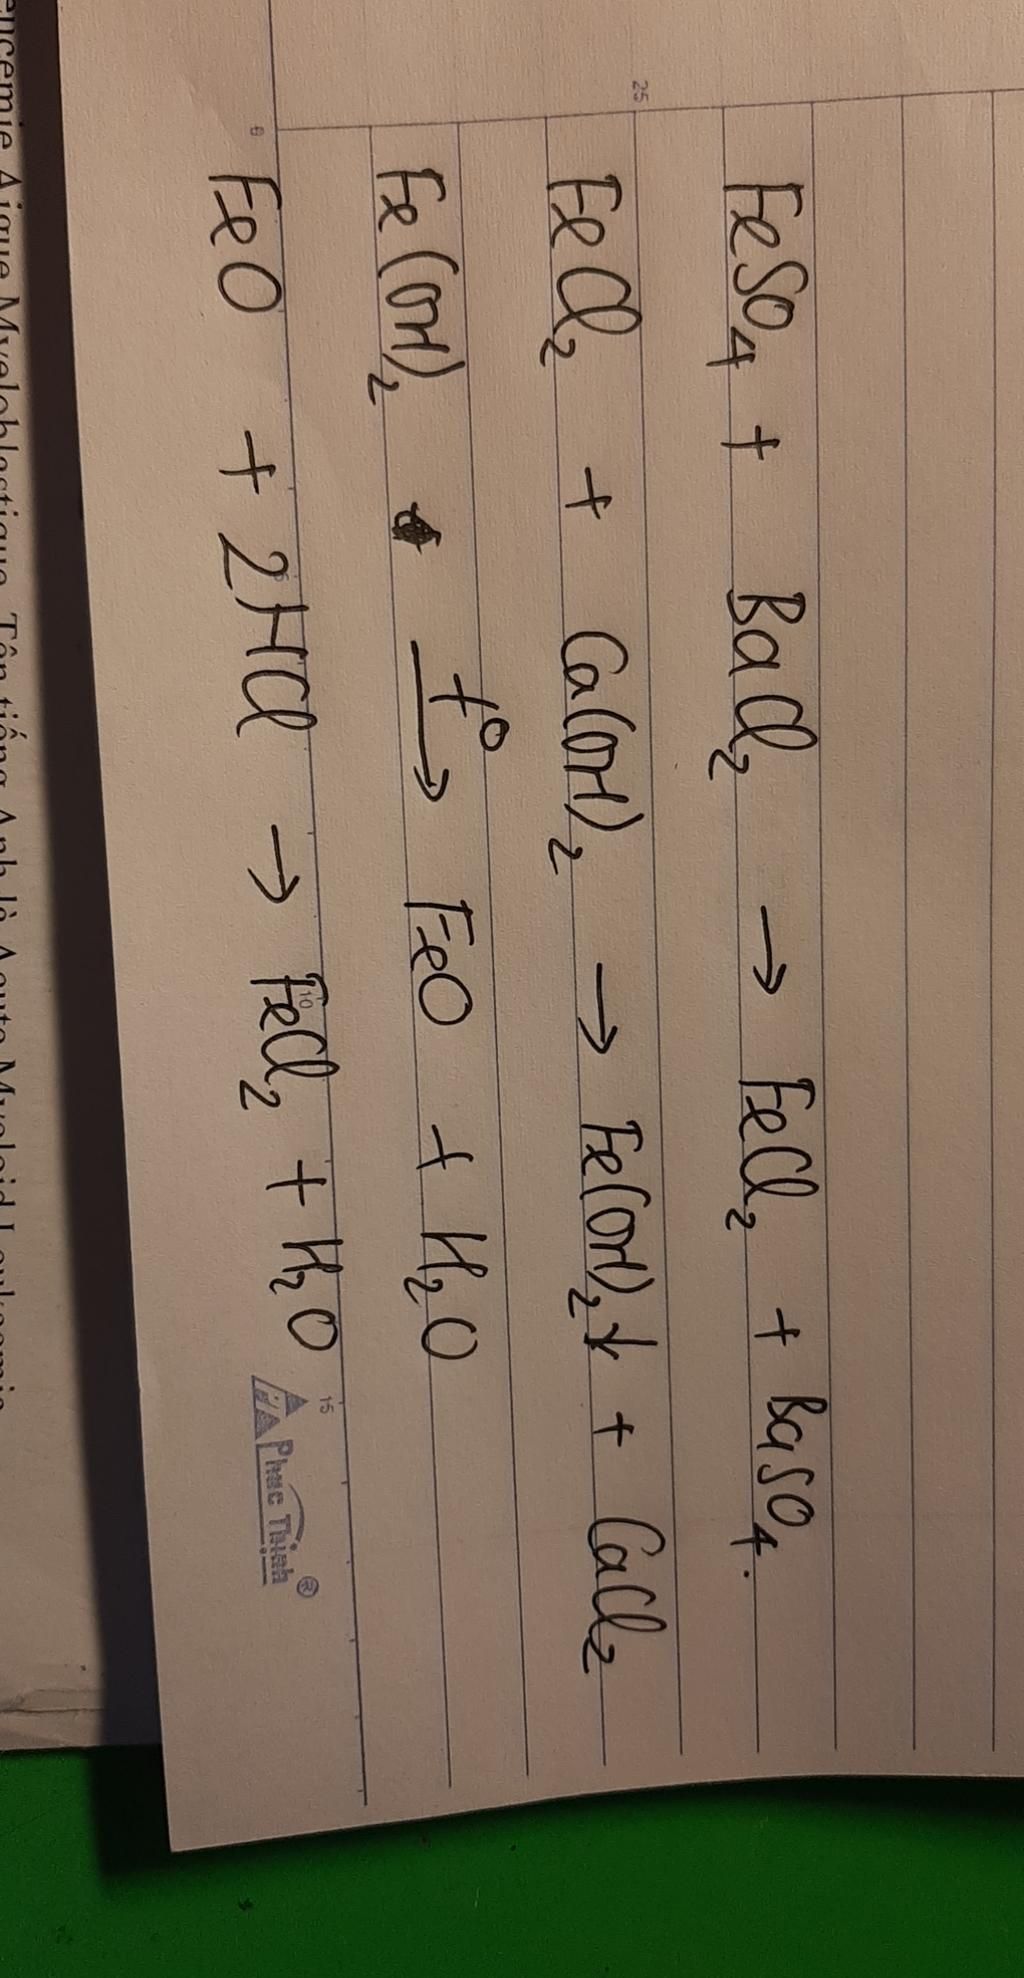 FeSO₄ + BaCl₂ → FeCl₂ + BaSO₄.
FeCl₂ + Ca(OH)₂ → Fe(OH)₂↓ + CaCl₂
Fe(OH)₂ t° → FeO + H₂O
FeO + 2HCl → FeCl₂ + H₂O
25
6
10
15
Phuc Thinh®
Aigue Myeloblastique. Tên tiếng Anh là Acute Myeloid Leukaemia